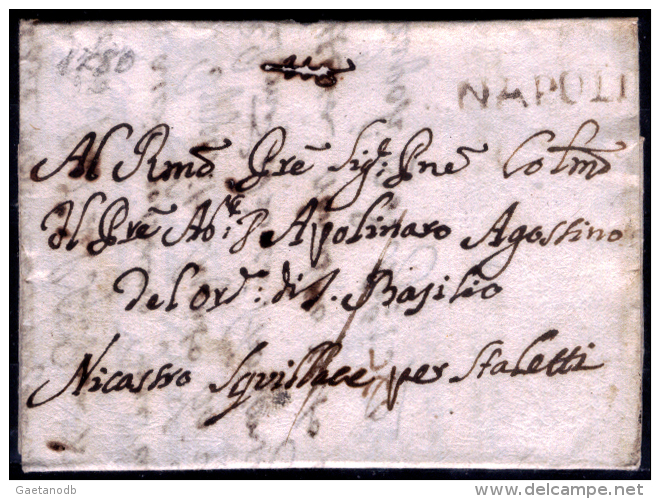 1780
NAPOLI
Al Rmo Pre Sig: Pne Colmo
Il Pre Abte: P. Apolinaro Agostino
Del ord: di S. Basilio
Nicastro Sqvillace per Staletti
Gaetanodb
www.delcampe.net